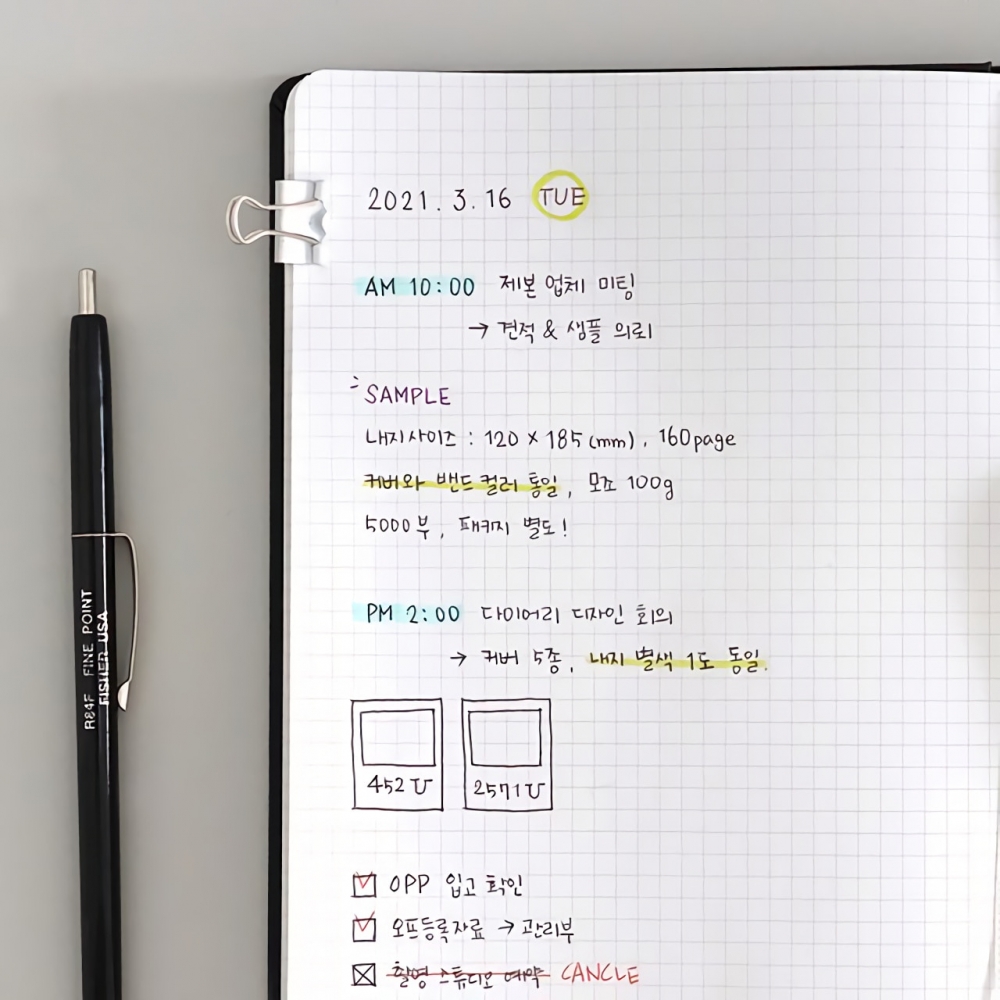 2021. 3. 16 TUE
AM 10:00 제본 업체 미팅
→ 견적 & 샘플 의뢰
SAMPLE
내지사이즈 : 120 × 185 (mm), 160page
커버와 밴드 컬러 통일, 모조 100g
5000부, 패키지 별도!
PM 2:00 다이어리 디자인 회의
→ 커버 5종, 내지 별색 1도 동일.
452U
2571U
OPP 입고 확인
오프등록자료 → 관리부
촬영 스튜디오 예약 CANCLE
R84F FINE POINT
FISHER USA